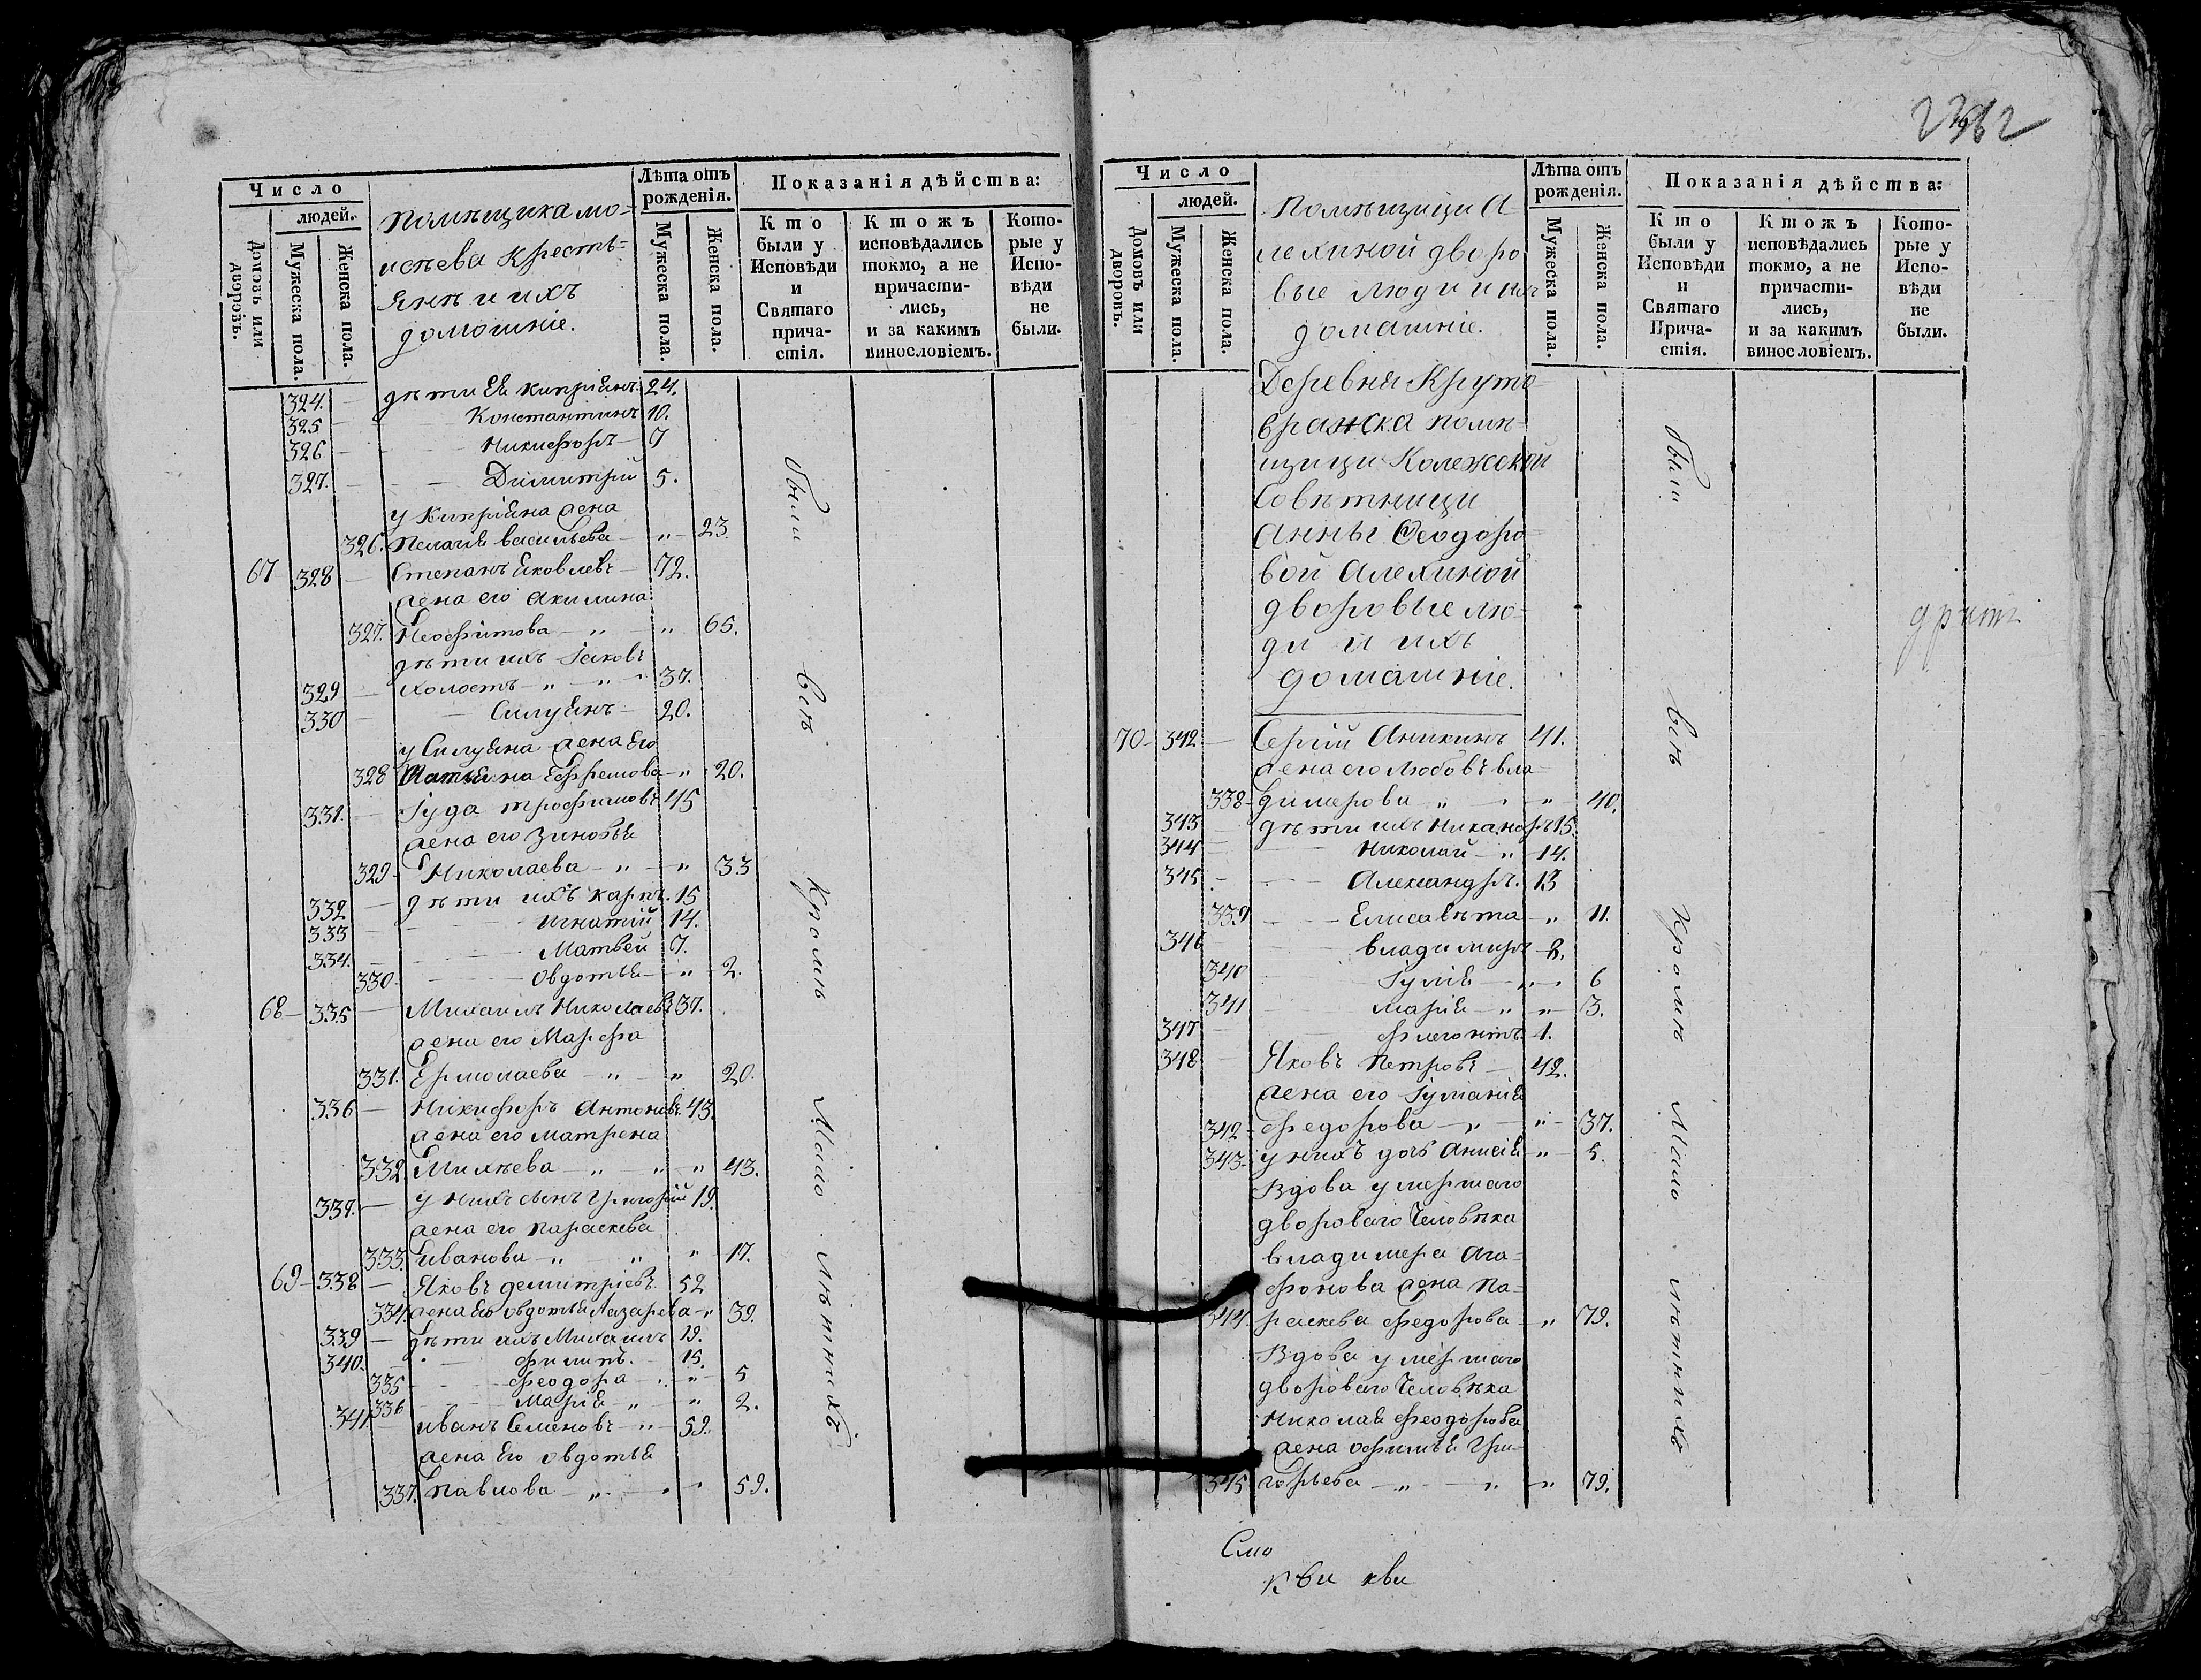 Число
людей.
Домовъ или дворовъ.
Мужеска пола.
Женска пола.
Помѣщика Мо-
исѣева Кресть-
яне и ихъ
домашніе.
Лѣта отъ рожденія.
Мужеска пола.
Женска пола.
Показанія дѣйства:
Кто были у Исповѣди и Святаго прича-стія.
Ктожъ исповѣдались токмо, а не причасти-лись, и за какимъ винословіемъ.
Кото-рые у Испо-вѣди не были.
324. дѣти Ея Кипріянъ 24.
325 Константинъ 10.
326 Никифоръ 7
327. Димитрій 5.
у Кипріяна жена
326. Пелагія васильева „ 23.
67 328 Степанъ Яковлевъ 72.
жена его Акилина
327. Неофитова „ „ 65.
дѣти ихъ Іаковъ
329 холостъ „ „ 37.
330 Силуянъ 20.
у Силуяна жена Его
328 Татіяна Ефремова „ 20.
331. Іуда трофимовъ 45
жена его Зиновья
329 Николаева „ „ 33
332 дѣти ихъ Карпъ 15
333 Игнатій 14.
334. Матвей 7.
330 Овдотья „ 2.
68 335 Михаилъ Николаевъ 37.
жена его Марфа
331. Ермолаева „ „ 20.
336 Никифоръ Антоновъ 43
жена его матрена
332 Михѣева „ „ „ 43.
339. у нихъ сынъ Григорій 19.
жена его параскева
333. Иванова „ „ „ 17.
69 338 Яковъ демитріевъ 52
334. жена Его овдотья Лазарева „ 39.
339 дѣти ихъ Михаилъ 19.
340. филипъ. 15.
335 феодора „ „ 5
336 Марія „ „ 2.
341. иванъ Семеновъ „ 59.
жена Его овдотья
337. Павлова „ „ „ 59.
были
всѣ
Кромѣ
Мало
лѣтнихъ
Число
людей.
Домовъ или дворовъ.
Мужеска пола.
Женска пола.
Помѣщицы А-
лехиной дворо
вые люди и ихъ
домашніе.
Лѣта отъ рожденія.
Мужеска пола.
Женска пола.
Показанія дѣйства:
Кто были у Исповѣди и Святаго Прича-стія.
Ктожъ исповѣдались токмо, а не причасти-лись, и за какимъ винословіемъ.
Кото-рые у Испо-вѣди не были.
Деревня Круто-
вражска помѣ-
щицы Колежской
Совѣтницы
Анны Феодоро-
вой Алехиной
дворовые лю-
ди и ихъ
домашніе.
70 342 Сергій Аникинъ 41.
жена его Любовь вла-
338 димерова „ „ „ 40.
343 дѣти ихъ Никаноръ 15.
344 Николай „ 14.
345. Александръ. 13
339 Елисавѣта „ 11.
346 владимиръ 8.
340 Іулія „ 6
341 марія „ „ 3.
347 флегонтъ. 1.
348 Яковъ Петровъ 42.
жена его Іуліанія
342 федорова „ „ 37.
343. у нихъ дочь Анисія „ 5.
Вдова умершаго
двороваго Человѣка
владимера Ага-
фонова жена Па-
344. раскева федорова „ 79.
Вдова умершаго
двороваго Человѣка
Николая феодорова
жена офимья Гри-
345 горьева „ „ „ 79.
были
всѣ
Кромѣ
Мало
лѣтнихъ